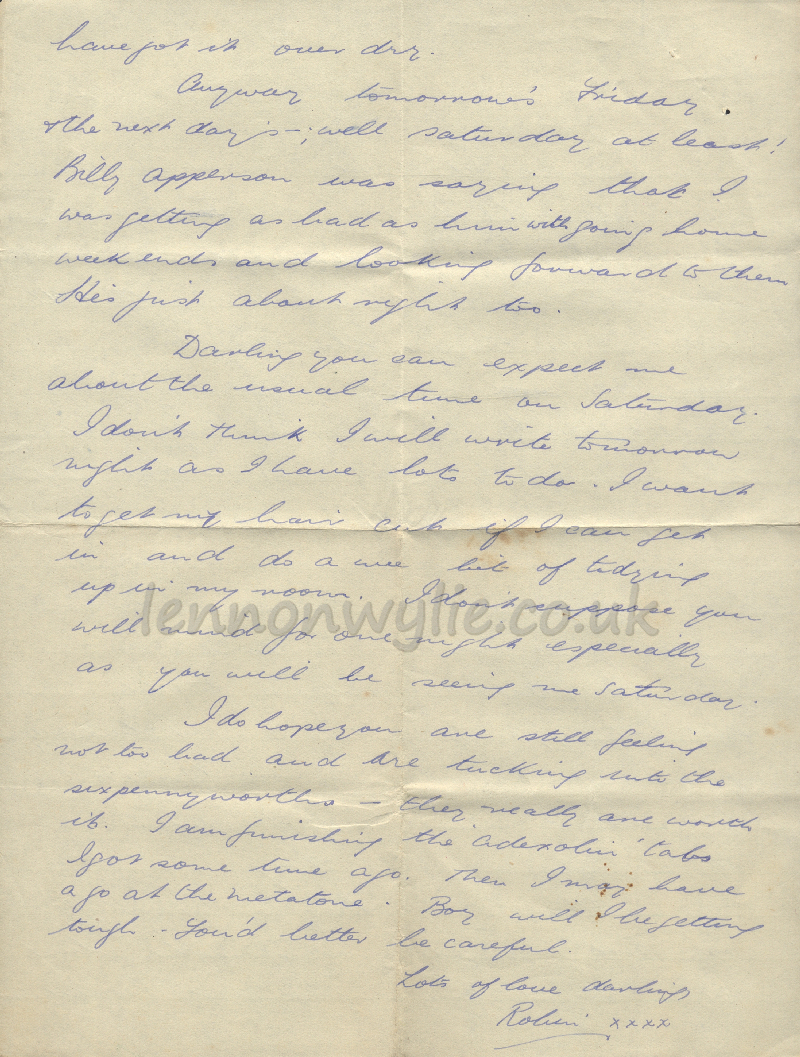 have got it over dry.
Anyway tomorrow's Friday
& the next day's -; well saturday at least!
Billy Apperson was saying that I
was getting as bad as him with going home
weekends and looking forward to them
He's just about right too.
Darling you can expect me
about the usual time on Saturday.
I don't think I will write tomorrow
night as I have lots to do. I want
to get my hair cut if I can get
in and do a wee bit of tidying
up in my room. I don't suppose you
lennonwylie.co.uk
will mind for one night especially
as you will be seeing me Saturday.
I do hope you are still feeling
not too bad and are tucking into the
sixpennyworths - they really are worth
it. I am finishing the 'adexolin' tabs
I got some time ago. Then I may have
a go at the metatone. Boy will I be getting
tough - You'd better be careful.
Lots of love darling
Robin xxxx